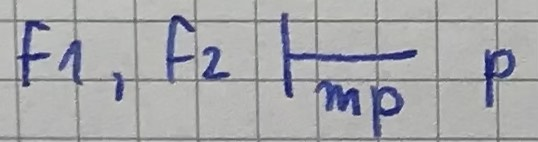 F1, F2 ⊢mp p